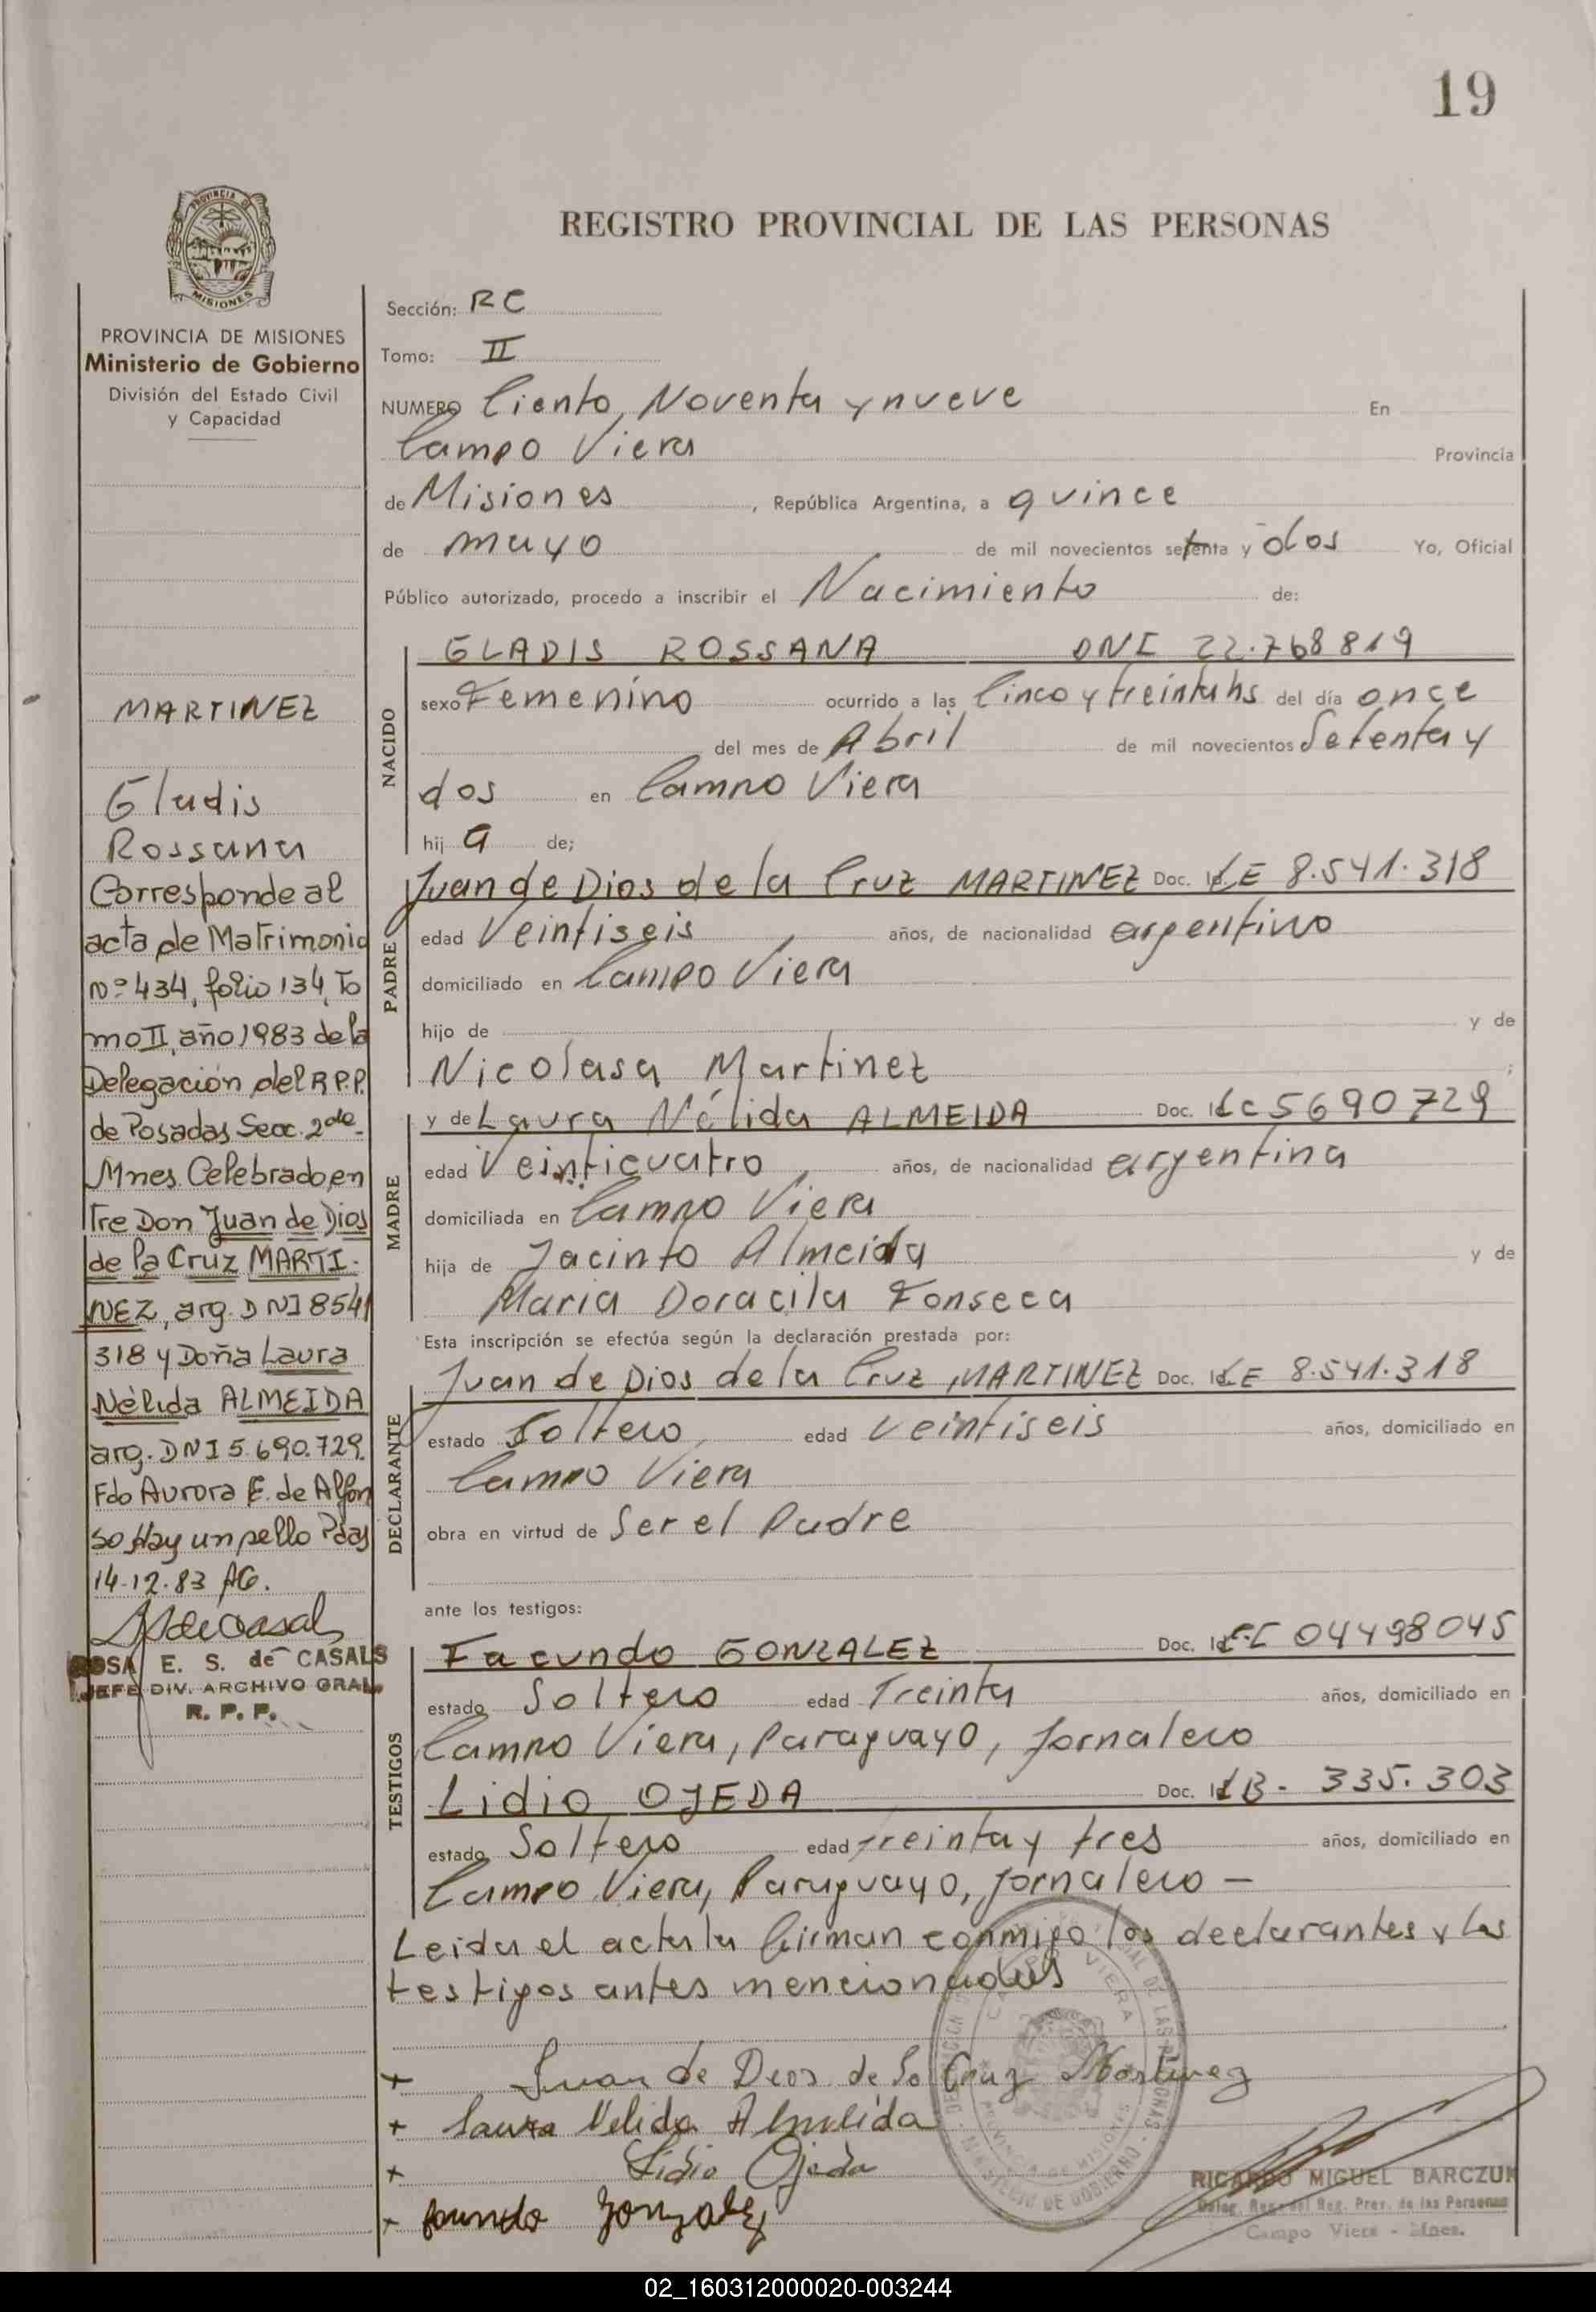 19
REGISTRO PROVINCIAL DE LAS PERSONAS
PROVINCIA DE MISIONES
Ministerio de Gobierno
División del Estado Civil
y Capacidad
MARTINEZ
Gladis
Rossana
Corresponde al
acta de Matrimonio
Nº 434, folio 134, To
mo II, año 1983 de la
Delegación del R.P.P.
de Posadas Secc. 2da.
Mnes. Celebrado en
tre Don Juan de Dios
de la Cruz MARTI-
NEZ, arg. DNI 8541
318 y Doña Laura
Nélida ALMEIDA
arg. DNI 5.690.729.
Fdo Aurora E. de Alfon
so Hay un sello Pdas
14-12-83 AG.
ROSA E. S. de CASALS
JEFE DIV. ARCHIVO GRAL.
R. P. P.
Sección: RC
Tomo: II
NUMERO Ciento, Noventa y nueve En
Campo Viera Provincia
de Misiones, República Argentina, a quince
de mayo de mil novecientos setenta y dos Yo, Oficial
Público autorizado, procedo a inscribir el Nacimiento de:
NACIDO
GLADIS ROSSANA DNI 22.768819
sexo Femenino ocurrido a las Cinco y treinta hs del día once
del mes de Abril de mil novecientos Setenta y
dos en Campo Viera
hij a de;
PADRE
Juan de Dios de la Cruz MARTINEZ Doc. Id LE 8.541.318
edad Veintiseis, años, de nacionalidad argentino
domiciliado en Campo Viera
hijo de y de
Nicolasa Martinez ;
MADRE
y de Laura Nélida ALMEIDA Doc. Id LC 5690729
edad Veinticuatro, años, de nacionalidad argentina
domiciliada en Campo Viera
hija de Jacinto Almeida y de
Maria Doracila Fonseca
Esta inscripción se efectúa según la declaración prestada por:
DECLARANTE
Juan de Dios de la Cruz MARTINEZ Doc. Id LE 8.541.318
estado Soltero, edad Veintiseis años, domiciliado en
Campo Viera
obra en virtud de Ser el Padre
ante los testigos:
TESTIGOS
Facundo GONZALEZ Doc. Id C.I 04498045
estado Soltero edad Treinta años, domiciliado en
Campo Viera, Paraguayo, Jornalero
Lidio OJEDA Doc. Id B- 335.303
estado Soltero edad treinta y tres años, domiciliado en
Campo Viera, Paraguayo, Jornalero —
Leida el acta la firman conmigo los declarantes y los
testigos antes mencionados
+ Juan de Dios de la Cruz Martinez
+ Laura Nelida Almeida
+ Lidio Ojeda
+ facundo gonzalez
RICARDO MIGUEL BARCZUK
Campo Viera - Mnes.
02_160312000020-003244